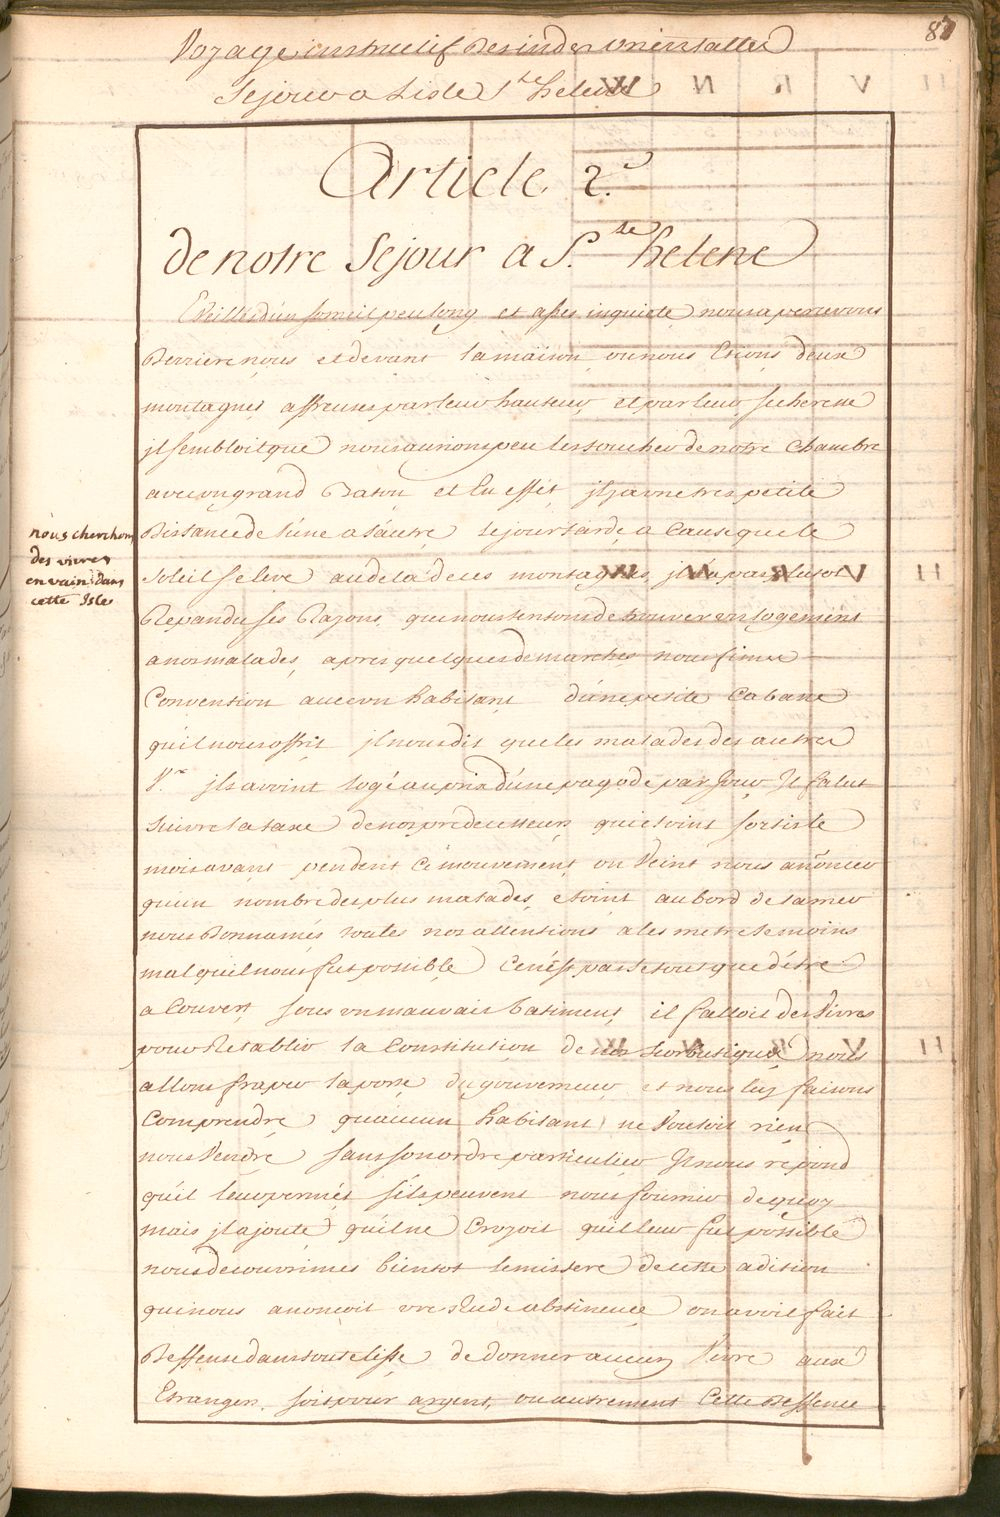 87
Voyage instructif Des indes orientalles
Sejour a Lisle S.te helene
Article 2.
de notre Sejour a S.te helene
Eveilles d'un someil peu long et asses inquiete nous apercevons
Derriere nous et devant la maison ou nous Etions deux
montagnes affreuses par leur hauteur et par leur secheresse
jl sembloit que nous aurions peu les toucher de notre chambre
avec un grand Baton et En effet jl y a une tres petite
Distance de l'une a l'autre le jour tarde a Cause que le
Soleil se leve au dela de ces montagnes, jl n'a pas plutot
Repandu ses Rayons que nous tentons de trouver un logement
a nos malades, apres quelques demarches nous fimes
Convention avec un habitant d'une petite Cabane
qu'il nous offrit jl nous dit que les malades des autres
V.r jls avoint logé au prix d'une pagode par Jour Il falut
suivre la taxe de nos predecesseurs qui etoint sortis le
mois avant pendent ce mouvement on Vient nous anoncer
qu'un nombre des plus malades etoint au bord de la mer
nous Donnames toutes nos attentions a les metre le moins
mal qu'il nous fut possible Ce n'est pas le tout que d'être
a Couvert sous un mauvais batiment il falloit des Vivres
pour Retablir la Constitution de nos scorbutiques nous
allons fraper la porte du gouverneur et nous luy faisons
Comprendre qu'aucun habitant ne Vouloit rien
nous Vendre sans son ordre particulier Il nous repond
qu'il leur permet s'ils peuvent nous fournir de quoy
mais jl ajoute qu'il ne Croyoit qu'il leur fut possible
nous decouvrimes bientot le missere de cette adition
qui nous anonçoit une Rude abstinence on avoit fait
Deffense dans toute l'isle de donner aucun Vivre aux
Etrangers soit pour argent, ou autrement Cette Deffence
nous cherchons
des vivres
en vain dans
cette Isle